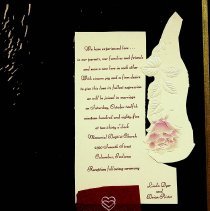 We have experienced love ...
in our parents, our families and friends
and now a new love in each other
With sincere joy and a firm desire
to give this love its fullest expression
we will be joined in marriage
on Saturday, October twelfth
nineteen hundred and eighty-five
at two thirty o'clock
Memorial Baptist Church
2320 Seventh Street
Columbus, Indiana
Reception following ceremony
Linda Dyer
and
Brian Porter